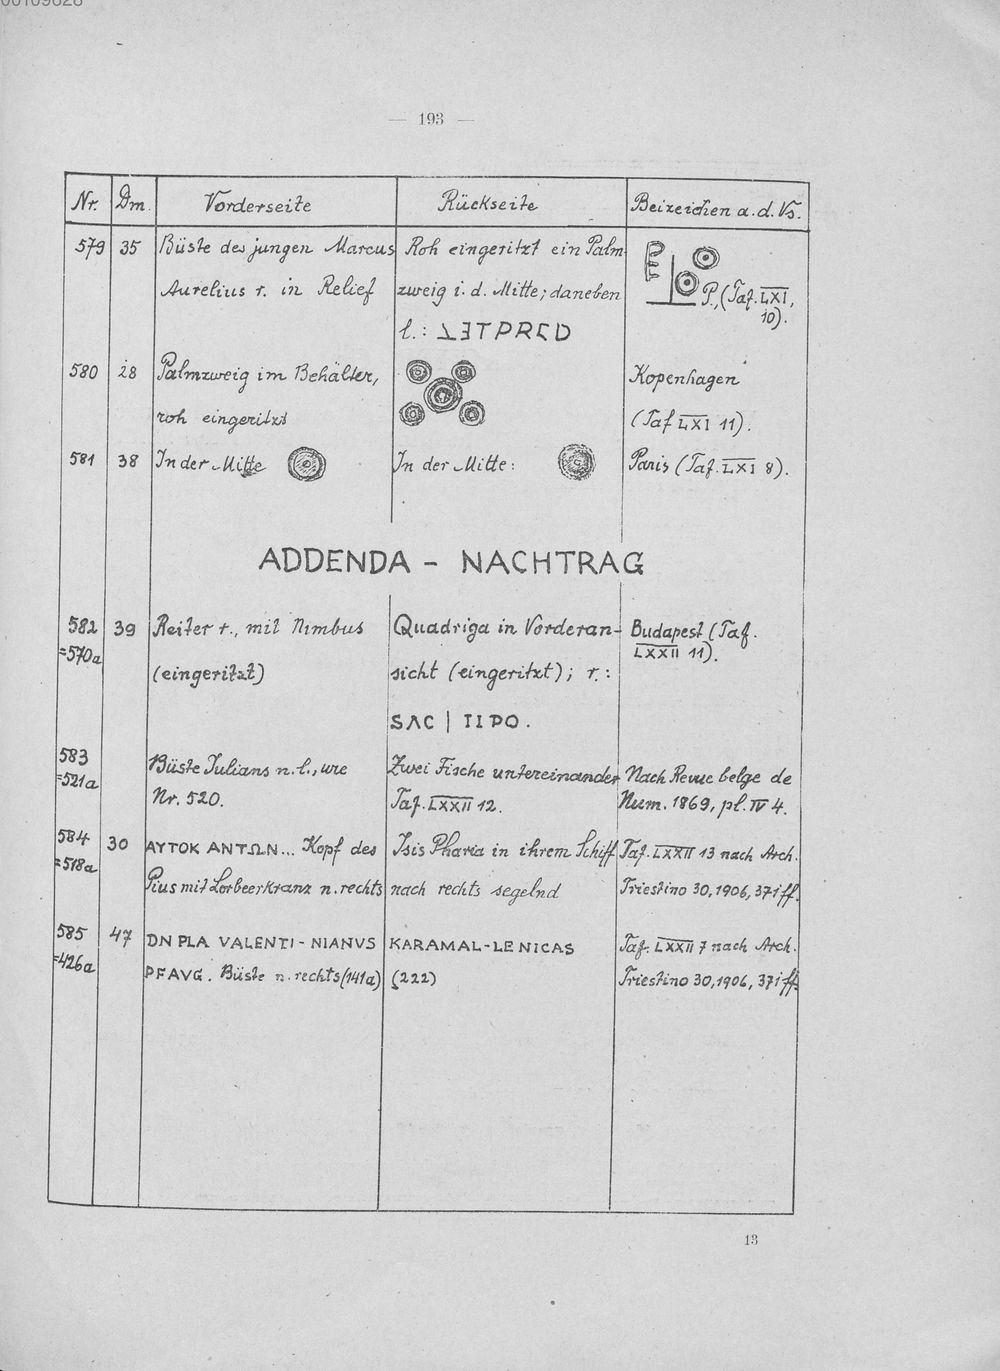 — 193 —
Nr. Dm. Vorderseite Rückseite Beizeichen a. d. Vs.
579 35 Büste des jungen Marcus Roh eingeritzt ein Palm-
Aurelius r. in Relief zweig i. d. Mitte; daneben P., (Taf. LXI,
10).
l.:
580 28 Palmzweig im Behälter, Kopenhagen
roh eingeritzt (Taf LXI 11).
581 38 In der Mitte In der Mitte: Paris (Taf. LXI 8).
ADDENDA - NACHTRAG
582 39 Reiter r., mit Nimbus Quadriga in Vorderan- Budapest (Taf.
=570a LXXII 11).
(eingeritzt) sicht (eingeritzt); r.:
SΛC | IIPO.
583 Büste Julians n. l., wie Zwei Fische untereinander Nach Revue belge de
=521a Nr. 520. Taf. LXXII 12. Num. 1869, pl. IV 4.
584 30 ΑΥΤΟΚ ΑΝΤΩΝ... Kopf des Isis Pharia in ihrem Schiff Taf. LXXII 13 nach Arch.
=518a Pius mit Lorbeerkranz n. rechts nach rechts segelnd Triestino 30, 1906, 371 ff.
585 47 DN PLA VALENTI - NIANVS KARAMAL-LE NICAS Taf. LXXII 7 nach Arch.
=426a PFAVG. Büste n. rechts (141a) (222) Triestino 30, 1906, 371 ff.
13